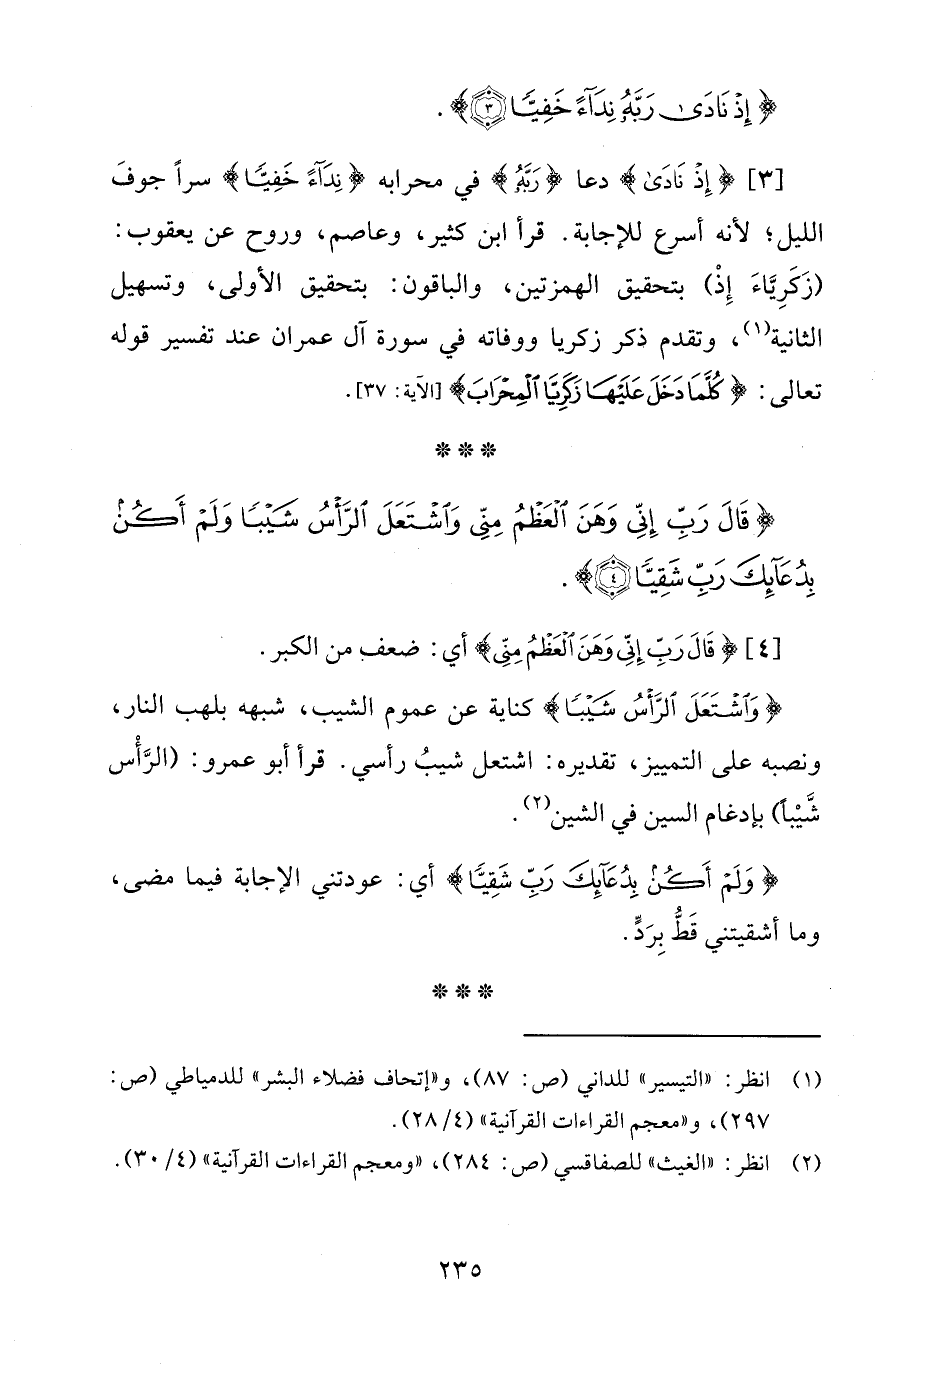 ﴿ إِذْ نَادَىٰ رَبَّهُۥ نِدَآءً خَفِيًّا ۝٣﴾ .
[٣] ﴿ إِذْ نَادَىٰ ﴾ دعا ﴿ رَبَّهُۥ ﴾ في محرابه ﴿ نِدَآءً خَفِيًّا ﴾ سراً جوفَ
الليل؛ لأنه أسرع للإجابة. قرأ ابن كثير، وعاصم، وروح عن يعقوب:
(زَكَرِيَّاءَ إِذْ) بتحقيق الهمزتين، والباقون: بتحقيق الأولى، وتسهيل
الثانية(١)، وتقدم ذكر زكريا ووفاته في سورة آل عمران عند تفسير قوله
تعالى: ﴿ كُلَّمَا دَخَلَ عَلَيْهَا زَكَرِيَّا ٱلْمِحْرَابَ ﴾ [الآية: ٣٧].
* * *
﴿ قَالَ رَبِّ إِنِّي وَهَنَ ٱلْعَظْمُ مِنِّي وَٱشْتَعَلَ ٱلرَّأْسُ شَيْبًا وَلَمْ أَكُنۢ
بِدُعَآئِكَ رَبِّ شَقِيًّا ۝٤﴾ .
[٤] ﴿ قَالَ رَبِّ إِنِّي وَهَنَ ٱلْعَظْمُ مِنِّي ﴾ أي: ضعف من الكبر.
﴿ وَٱشْتَعَلَ ٱلرَّأْسُ شَيْبًا ﴾ كناية عن عموم الشيب، شبهه بلهب النار،
ونصبه على التمييز، تقديره: اشتعل شيبُ رأسي. قرأ أبو عمرو: (الرَّأْس
شَّيْباً) بإدغام السين في الشين(٢).
﴿ وَلَمْ أَكُنۢ بِدُعَآئِكَ رَبِّ شَقِيًّا ﴾ أي: عودتني الإجابة فيما مضى،
وما أشقيتني قَطُّ بِرَدٍّ.
* * *
(١) انظر: «التيسير» للداني (ص: ٨٧)، و«إتحاف فضلاء البشر» للدمياطي (ص:
٢٩٧)، و«معجم القراءات القرآنية» (٤/ ٢٨).
(٢) انظر: «الغيث» للصفاقسي (ص: ٢٨٤)، «ومعجم القراءات القرآنية» (٤/ ٣٠).
٢٣٥